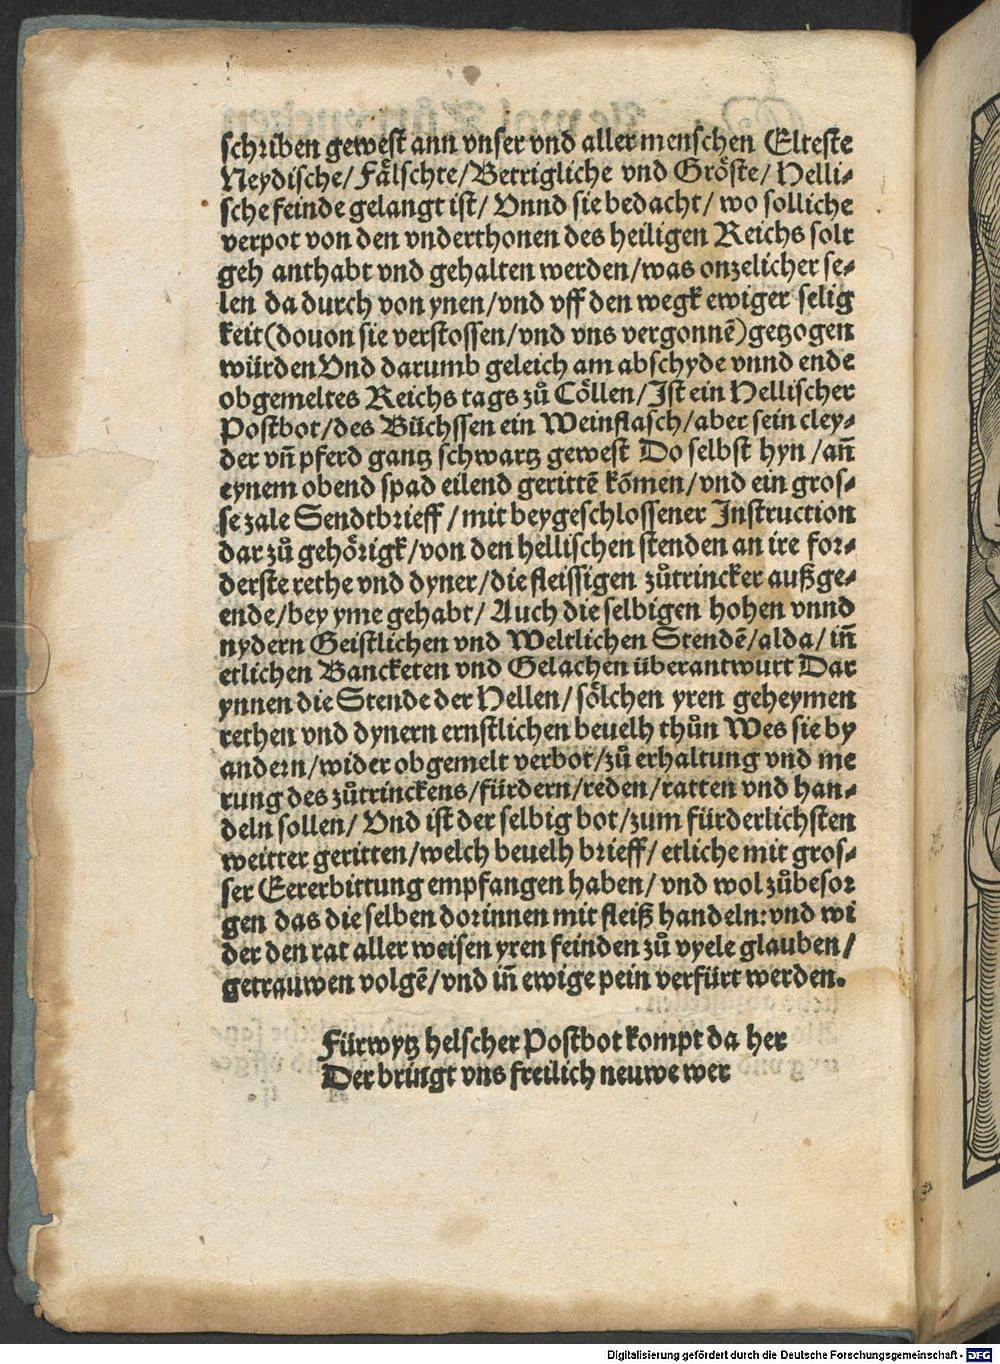 schriben gewest ann vnser vnd aller menschen Elteste
Neydische/ Fälschte/ Betrigliche vnd Gröste/ Helli-
sche feinde gelangt ist/ Vnnd sie bedacht/ wo solliche
verpot von den vnderthonen des heiligen Reichs solt
geh anthabt vnd gehalten werden/ was onzelicher se-
len da durch von ynen/ vnd vff den wegk ewiger selig
keit (douon sie verstossen/ vnd vns vergonnē) getzogen
würden Vnd darumb geleich am abschyde vnnd ende
obgemeltes Reichs tags zů Cöllen/ Ist ein Hellischer
Postbot/ des Büchssen ein Weinflasch/ aber sein cley-
der vñ pferd gantz schwartz gewest Do selbst hyn/ añ
eynem obend spad eilend gerittē kōmen/ vnd ein gros-
se zale Sendtbrieff/ mit beygeschlossener Instruction
dar zů gehörigk/ von den hellischen stenden an ire for-
derste rethe vnd dyner/ die fleissigen zůtrincker außge-
ende/ bey yme gehabt/ Auch die selbigen hohen vnnd
nydern Geistlichen vnd Weltlichen Stendē/ alda/ iñ
etlichen Bancketen vnd Gelachen überantwurt Dar
ynnen die Stende der Hellen/ sölchen yren geheymen
rethen vnd dynern ernstlichen beuelh thůn Wes sie by
andern/ wider obgemelt verbot/ zů erhaltung vnd me
rung des zůtrinckens/ fürdern/ reden/ ratten vnd han-
deln sollen/ Vnd ist der selbig bot/ zum fürderlichsten
weitter geritten/ welch beuelh brieff/ etliche mit gros-
ser Eererbittung empfangen haben/ vnd wol zůbesor
gen das die selben dorinnen mit fleiß handeln: vnd wi
der den rat aller weisen yren feinden zů vyele glauben/
getrauwen volgē/ vnd iñ ewige pein verfürt werden.
Fürwytz helscher Postbot kompt da her
Der bringt vns freilich neuwe wer
Digitalisierung gefördert durch die Deutsche Forschungsgemeinschaft - DFG